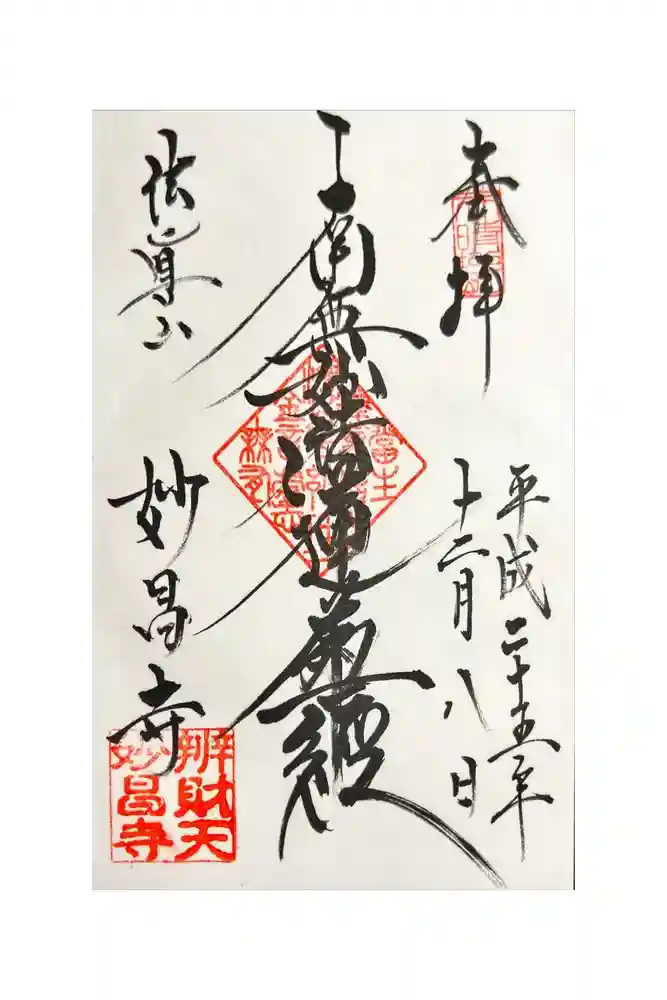 奉拝
平成二十五年
十二月八日
南無妙法蓮華経
法道山
妙昌寺
辨財天
妙昌寺